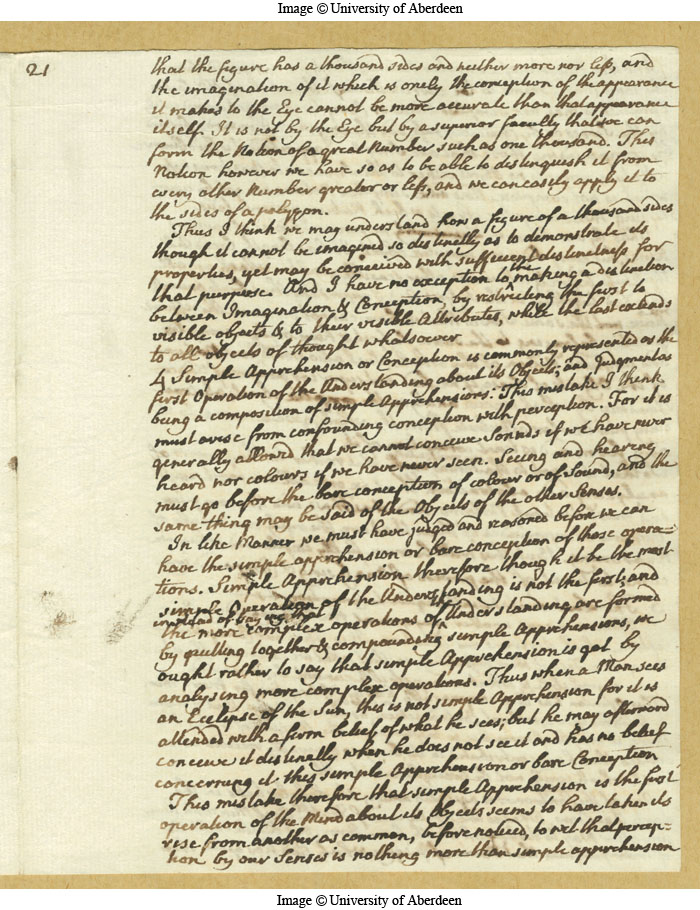 Image © University of Aberdeen
21
that the figure has a thousand sides and neither more nor less, and
the imagination of it which is onely the conception of the appearance
it makes to the Eye cannot be more accurate than that appearance
itself. It is not by the Eye but by a superior faculty that we can
form the Notion of a great Number such as one thousand. This
Notion however we have so as to be able to distinguish it from
every other Number greater or less, and we can easily apply it to
the sides of a polygon.
Thus I think we may understand how a figure of a thousand sides
though it cannot be imagined so distinctly as to demonstrate its
properties, yet may be conceived with sufficient distinctness for
that purpose. And I have no exception to the making a distinction
between Imagination & Conception, by restricting the first to
visible objects & to their visible Attributes, while the last extends
to all objects of thought whatsoever
4 Simple Apprehension or Conception is commonly represented as the
first Operation of the Understanding about its Objects; and Judgment as
being a composition of simple Apprehensions. This mistake I think
must arise from confounding conception with perception. For it is
generally allowed that we cannot conceive Sounds if we have never
heard nor colours if we have never seen. Seeing and hearing
must go before the bare conception of colour or of Sound, and the
same thing may be said of the Objects of the other Senses.
In like Manner we must have judged and reasoned before we can
have the simple apprehension or bare conception of these opera=
tions. Simple Apprehension therefore though it be the most
simple Operation of the Understanding is not the first; and
instead of saying that
the more complex operations of the Understanding are formed
by putting together & compounding simple Apprehensions, we
ought rather to say that simple Apprehension is got by
analysing more complex operations. Thus when a Man sees
an Ecclipse of the Sun, this is not simple Apprehension for it is
attended with a firm belief of what he sees; but he may afterward
conceive it distinctly when he does not see it and has no belief
concerning it this simple Apprehension or bare Conception
This mistake therefore that simple Apprehension is the first
operation of the Mind about its Objects seems to have taken its
rise from another as common, before noticed, to wit that percep=
tion by our Senses is nothing more than simple apprehension
Image © University of Aberdeen